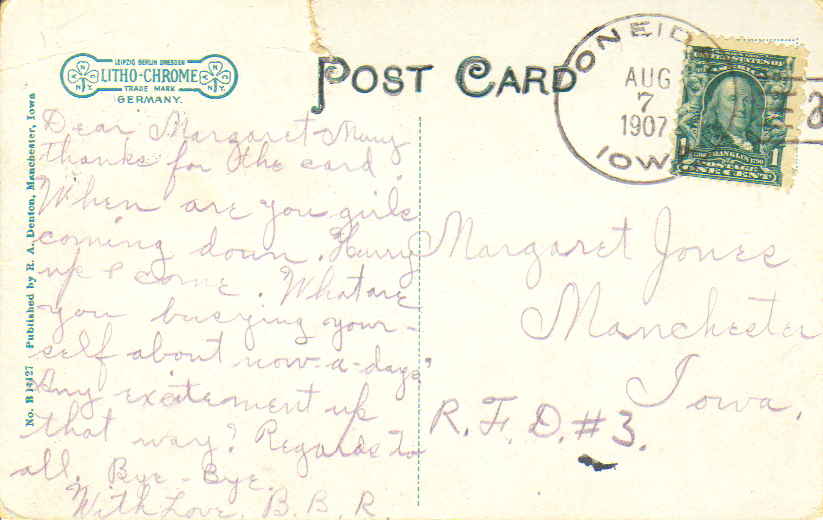 LEIPZIG BERLIN DRESDEN
LITHO-CHROME
TRADE MARK
GERMANY.
POST CARD
ONEIDA
AUG
7
1907
IOWA
UNITED STATES OF
AMERICA
FRANKLIN
POSTAGE
ONE CENT
No. B 14427 Published by R. A. Denton, Manchester, Iowa
Dear Margaret - Many
thanks for the card.
When are you girls
coming down. Hurry
up & come. What are
you busying your-
self about now-a-days?
Any excitement up
that way? Regards to
all. Bye-Bye.
With Love. B. B. R.
Margaret Jones
Manchester
Iowa.
R. F. D. #3.